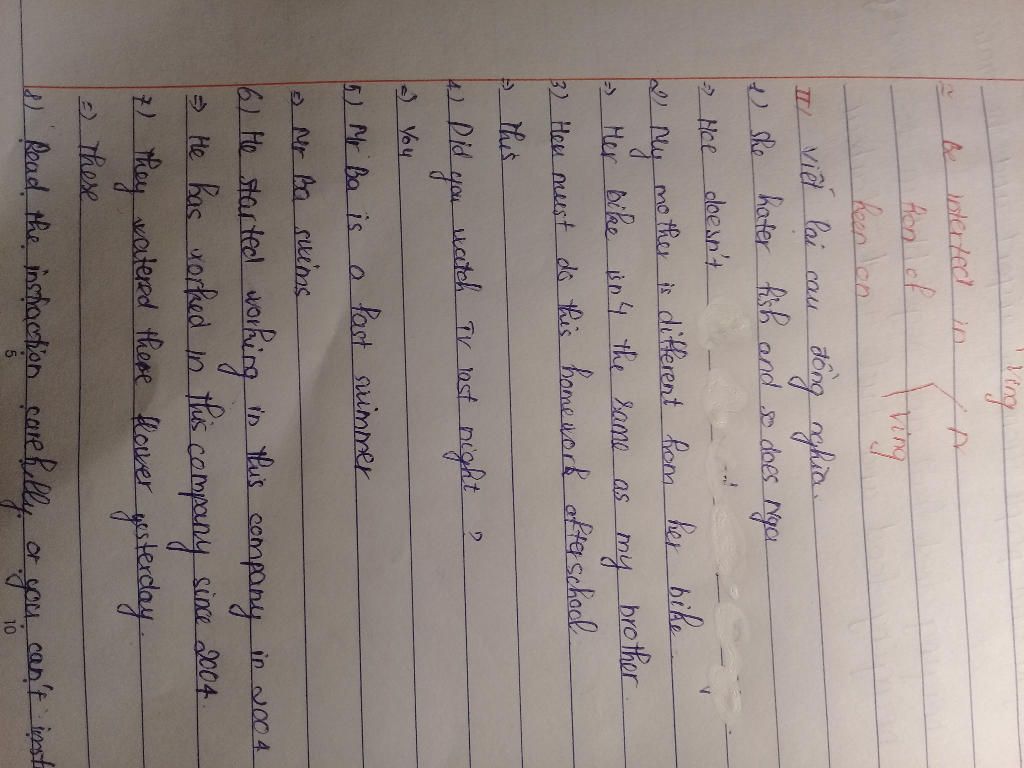 Ving
~ Be intersted in
fond of
keen on
N
Ving
II/ viết lại câu đồng nghĩa.
1) She hates fish and so does Nga
=> Hoa doesn't
2) My mother is different from her bike.
=> Her bike isn't the same as my brother.
3) Hou must do this homework after school.
=> This
4) Did you watch TV last night ?
=> Was
5) Mr Ba is a fast swimmer
=> Mr Ba swims
6) He started working in this company in 2004
=> He has worked in this company since 2004.
7) They watered these flower yesterday.
=> These
8) Read the instruction carefully or you can't
5
10